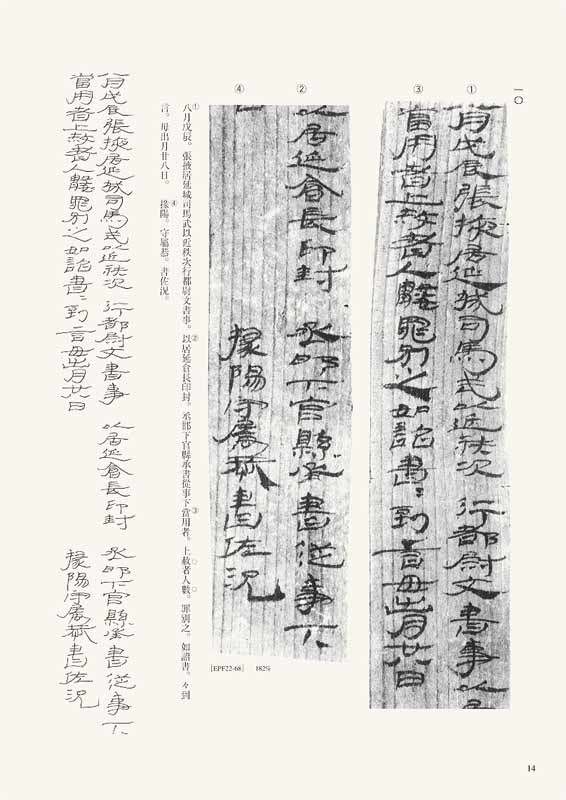 一〇
①
八月戊辰張掖居延城司馬武以近秩次　行都尉文書事以
③
當用者上赦者人數罪別之如詔書＝到言毋出月廿八日
②
以居延倉長印封　丞邯下官縣承書從事下
④
掾陽守屬恭書佐況
［EPF22-68］　182％
①八月戊辰。張掖居延城司馬武以近秩次行都尉文書事。②以居延倉長印封。丞邯下官縣承書從事下③當用者。上赦者人數。罪別之。如詔書。々到
言。毋出月廿八日。④掾陽。守屬恭。書佐況。
八月戊辰張掖居延城司馬武以近秩次　行都尉文書事　以居延倉長印封　丞邯下官縣承書從事下
當用者上赦者人數罪別之如詔書＝到言毋出月廿八日　掾陽守屬恭書佐況
14